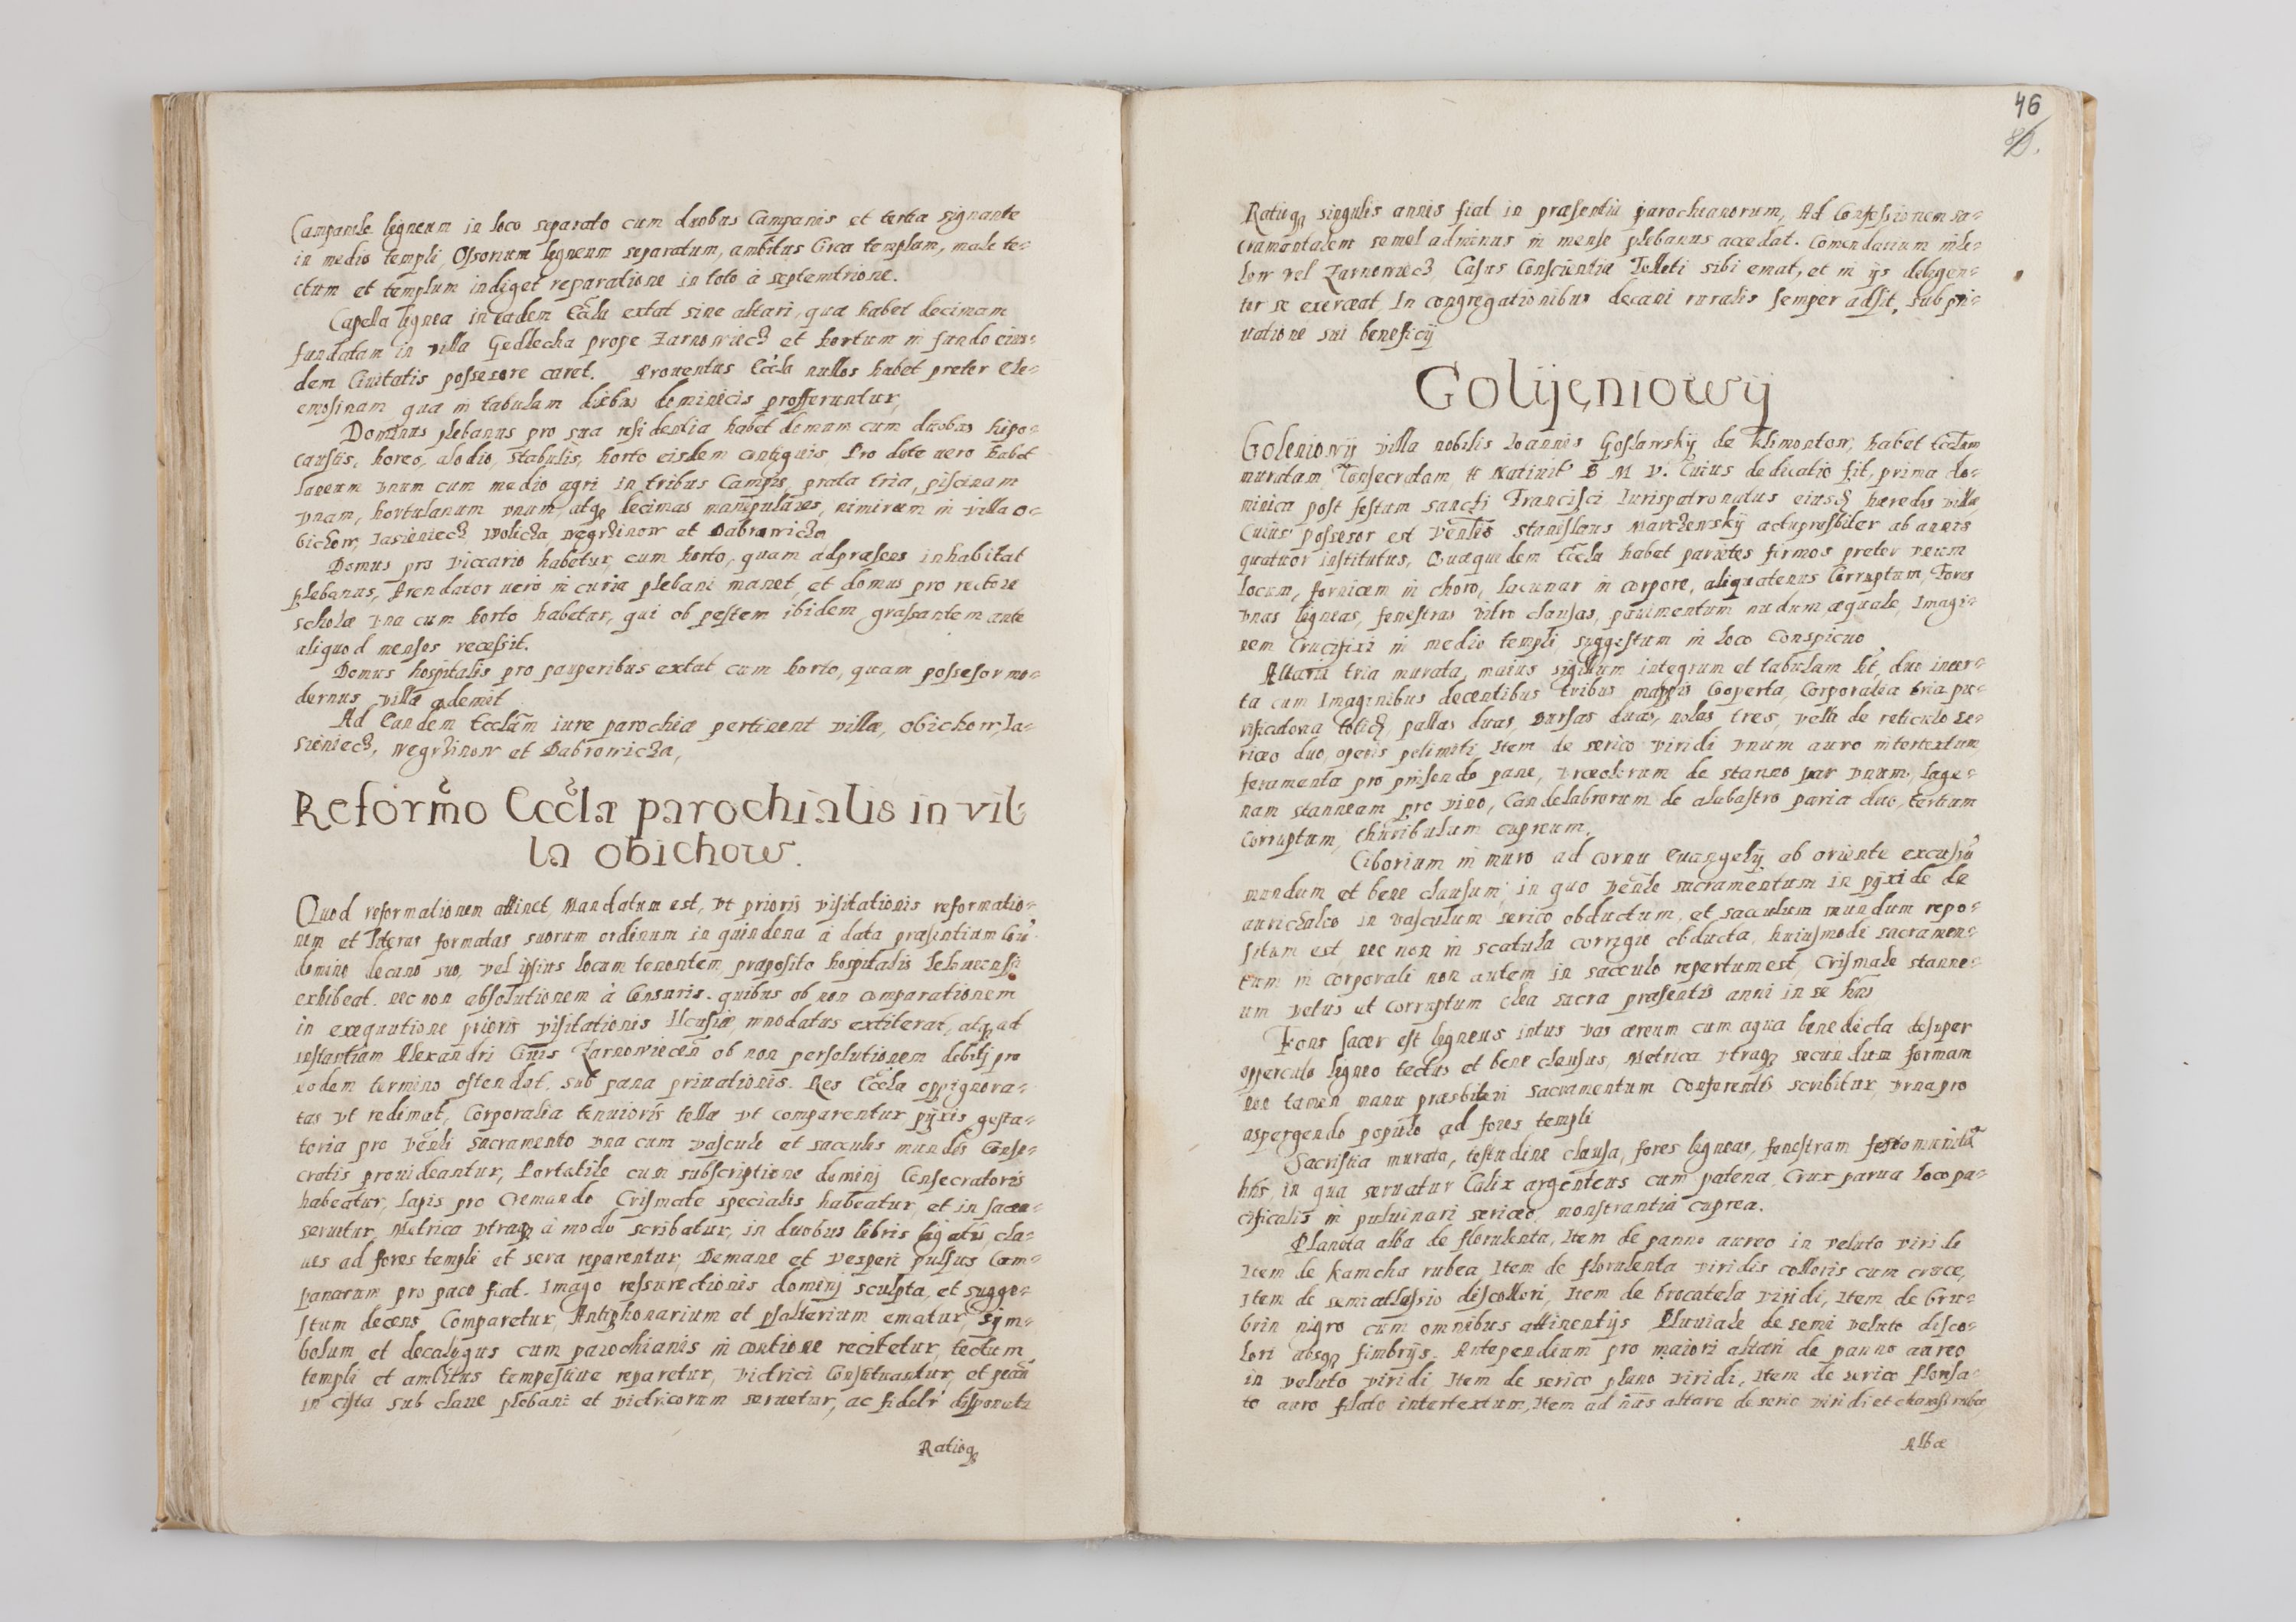 Campanile ligneum in loco separato cum duobus Campanis et tertia signante
in medio templi, Ossorium ligneum separatum, ambitus Circa templum, male te-
ctum et templum indiget reparatione in toto à septemtrione.
Capella lignea in eadem Eccla extat sine altari, qua habet decimam
fundatam in villa Gedlecha prope Zarnowiecz et hortum in fundo eius-
dem Ciuitatis possesore caret. Prouentus Eccla nullos habet preter Ele-
emosinam qua in tabulam diebus dominicis profferuntur,
Dominus plebanus pro sua residentia habet domum cum duobus hipo-
caustis, horeo, alodio, stabulis, horto eisdem contiguis, Pro dote uero habet
laneum vnum cum medio agri in tribus Campis, prata tria, piscinam
vnam, hortulanum vnum, atq decimas manipulares, nimirum in villa o-
bichow, Jasieniecz, Wolicza, Wegrzinow et Dabrowicza
Domus pro viccario habetur cum horto, quam adpraesens inhabitat
plebanus, Arendator uero in curia plebani manet, et domus pro rectore
scholæ vna cum horto habetur, qui ob pestem ibidem grassantem ante
aliquod menses recessit.
Domus hospitalis pro pauperibus extat cum horto, quam possesor mo-
dernus villæ ademit
Ad Eandem Ecclam iure parochiæ pertinent villæ, Obichow, Ja-
sieniecz, Wegrzinow et Dabrowicza,
Reformo Eccla parochialis in vil-
la Obichow.
Quod reformationem attinet, Mandatum est, vt prioris visitationis reformatio-
nem et literas formatas suorum ordinum in quindena à data præsentium
domino decano suo, vel ipsius locum tenentem præposito hospitalis
exhibeat. nec non absolutionem à Censuris. quibus ob non comparationem
in exequutione prioris visitationis innodatus extiterat, atq ad
instantiam Alexandri Ciuis Zarnowiecen ob non persolutionem debitj pro
eodem termino ostendat, sub pæna priuationis. Res Eccla oppignora-
tas vt redimat, Corporalia tenuioris tellæ vt comparentur pyxis gesta-
toria pro venli sacramento vna cum vasculo et sacculis mundis Conse-
cratis prouideantur, Portatile cum subscriptione dominj Consecratoris
habeatur, lapis pro Cremando Crismate specialis habeatur, et in
seruetur, Metrica vtraq à modo scribatur, in duobus libris ligatis, cla-
ues ad fores templi et sera reparentur, Demane et Vesperi pulsus Cam-
panarum pro pace fiat. Imago ressurectionis dominj sculpta, et sugge-
stum decens Comparetur, Antiphonarium et psalterium ematur, sym-
bolum et decalogus cum parochianis in contione recitetur, tectum
templi et ambitus tempestiue reparetur, victrici Constituantur, et
in cista sub claue plebani et victricorum seruetur, ac fideli
Ratioq
46
Ratioq singulis annis fiat in præsentia parochianorum, Ad Confessionem sa-
cramentalem semel adminus in mense plebanus accedat. Comendarium
low vel Zarnowiecz, Casus Conscientia Tolleti sibi emat, et in ijs deligen-
ter se exerceat, In congregationibus decani ruralis semper adsit, sub pri-
uatione sui beneficij
Golijeniowij
Goleniowij villa nobilis Ioannis Goslawskij de Klimontow, habet Ecclam
muratam, Consecratam, tt Natiuit B M V. Cuius dedicatio fit, prima do-
minica post festum sancti Francisci Iurispatronatus eiusq hæredis villæ,
Cuius possesor est venlis Stanislaus Marchewskij actupresbiter ab annis
quatuor institutus, Quæquidem Eccla habet parietes firmos preter vnum
locum, fornicem in choro, lacunar in corpore, aliquatenus Corruptum, Fores
vnas ligneas, fenestras vitro clausas, pauimentum nudum, æquale, Imagi-
nem Crucifixi in medio templi, suggestum in loco Conspicuo,
Altaria tria murata, maius sigillum integrum et tabulam ht, duo incer-
ta cum Imaginibus decentibus tribus mappis Cooperta, Corporalia tria pu-
rificatoria totiq, pallas duas, bursas duas, nolas tres, vella de reticulo se-
riceo duo, operis pelimiti, Item de serico viridi vnum auro intertextum,
feramenta pro pinsendo pane, vrceolorum de stanno par vnum, lage-
nam stanneam pro vino, Candelabrorum de alabastro paria duo, tertium
Corruptum, thuribulum cupreum,
Ciborium in muro ad cornu Euangelij ab oriente
mundum et bene clausum, in quo venle sacramentum in pyxide de
aurichalco in vasculum serico obductum, et sacculum mundum repo-
situm est, nec non in scatula corrigio obducta, huiusmodi sacramen-
tum in corporali non autem in sacculo repertum est, Crismale stanne-
um vetus et Corruptum olea sacra præsentis anni in se hns
Fons sacer est ligneus intus vas æreum cum aqua benedicta desuper
opperculo ligneo tectus et bene clausus, Metrica vtraq secundum formam
non tamen manu præsbiteri sacramentum Conferentis scribitur, vrna pro
aspergendo populo ad fores templi
Sacristia murata, testudine clausa, fores ligneas, fenestram fero munita
hns, in qua seruatur Calix argenteus cum patena, Crux parua loco pa-
cificalis in puluinari sericeo, monstrantia cuprea.
Planeta alba de florulenta, Item de panno aureo in veluto viride
Item de Kamcha rubea, Item de florulenta viridis colloris cum cruce,
Item de semiatlassio discollori, Item de brocatela viridi, Item de Gru-
brin nigro cum omnibus attinentijs Pluuiale de semi veluto disco-
lori absq fimbrijs. Antependium pro maiori altari de panno aureo
in veluto viridi, Item de serico plano viridi, Item de serico florisa-
to auro filato intertextum, Item ad altare de serico viridi et
Albæ